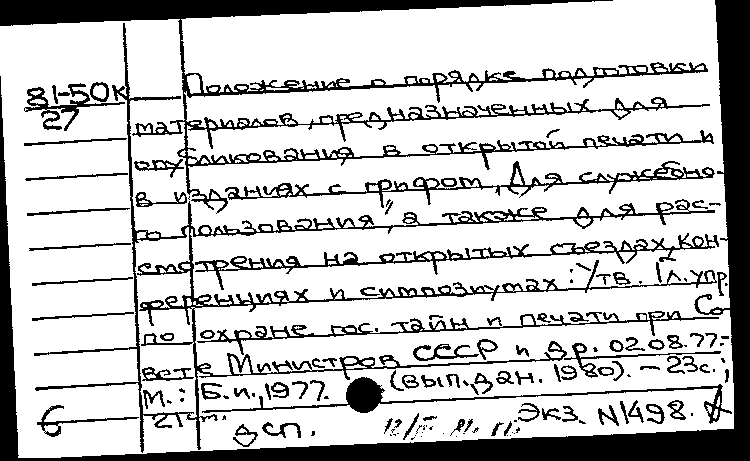 81-50к Положение о порядке подготовки
27 материалов, предназначенных для
опубликования в открытой печати и
в изданиях с грифом „Для служебно-
го пользования", а также для рас-
смотрения на открытых съездах, кон-
ференциях и симпозиумах: Утв. Гл. упр.
по охране гос. тайн и печати при Со-
вете Министров СССР и др. 02.08.77.-
М.: Б.и., 1977. (вып. дан. 1980). - 23с.;
21см.
б ДСП. Экз. N1498.